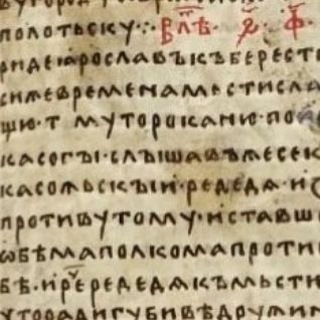 полотьску·:· В лѣ҃· ҂ѕ҃· ф҃·
ридеꙗрославъкъберест
сижевременамьстисла
щю·т мутороканю·по
касогы·слышавъжесек
касожьскъıи·редедѧ·и
противутому·иставш
ѡбѣмаполкомапроти
бѣ·ирⷱ҇ередедѧкъмьсти
чторадигубивѣдружин